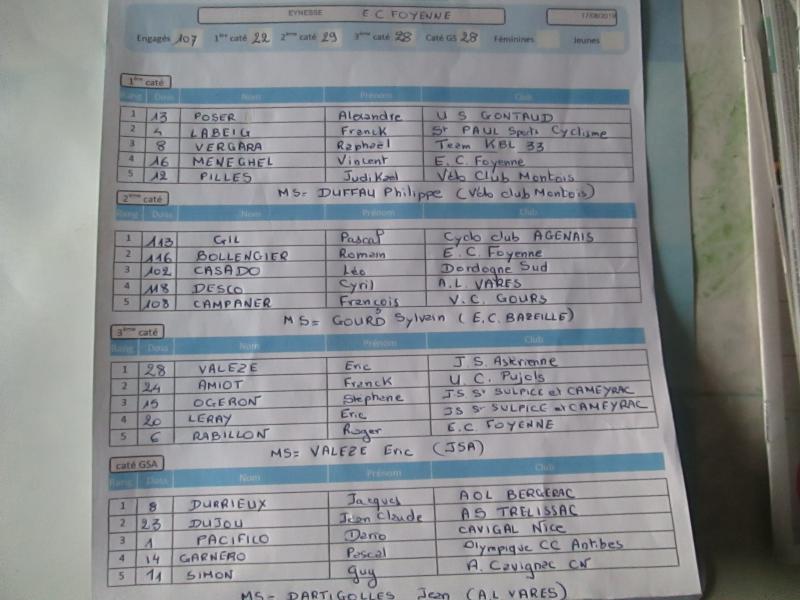 EYNESSE E.C. FOYENNE 17/08/2019
Engagés 107 1ère caté 22 2ème caté 29 3ème caté 28 Caté GS 28 Féminines Jeunes
1ère caté
Rang Doss Nom Prénom Club
1 13 POSER Alexandre U S GONTAUD
2 4 LABEIG Franck St PAUL Sports Cyclisme
3 8 VERGARA Raphaël Team KBL 33
4 16 MENEGHEL Vincent E.C. Foyenne
5 12 PILLES Judikael Vélo Club Montois
MS= DUFFAU Philippe (Vélo club Montois)
2ème caté
Rang Doss Nom Prénom Club
1 113 GIL Pascal Cyclo club AGENAIS
2 116 BOLLENGIER Romain E.C. Foyenne
3 102 CASADO Léo Dordogne Sud
4 118 DESCO Cyril A.L. VARES
5 108 CAMPANER François V.C. GOURS
MS= GOURD Sylvain (E.C. BAZEILLE)
3ème caté
Rang Doss Nom Prénom Club
1 28 VALEZE Eric J.S. Astérienne
2 24 AMIOT Franck U.C. Pujols
3 15 OGERON Stephane JS St SULPICE et CAMEYRAC
4 20 LERAY Eric JS St SULPICE et CAMEYRAC
5 6 RABILLON Roger E.C. FOYENNE
MS= VALEZE Eric (JSA)
caté GSA
Rang Doss Nom Prénom Club
1 8 DURRIEUX Jacques AOL BERGERAC
2 23 DUJOU Jean Claude AS TRELISSAC
3 1 PACIFILO Dario CAVIGAL Nice
4 14 GARNERO Pascal Olympique CC Antibes
5 11 SIMON Guy A. Cavignac CN
MS= DARTIGOLLES Jean (A.L VARES)